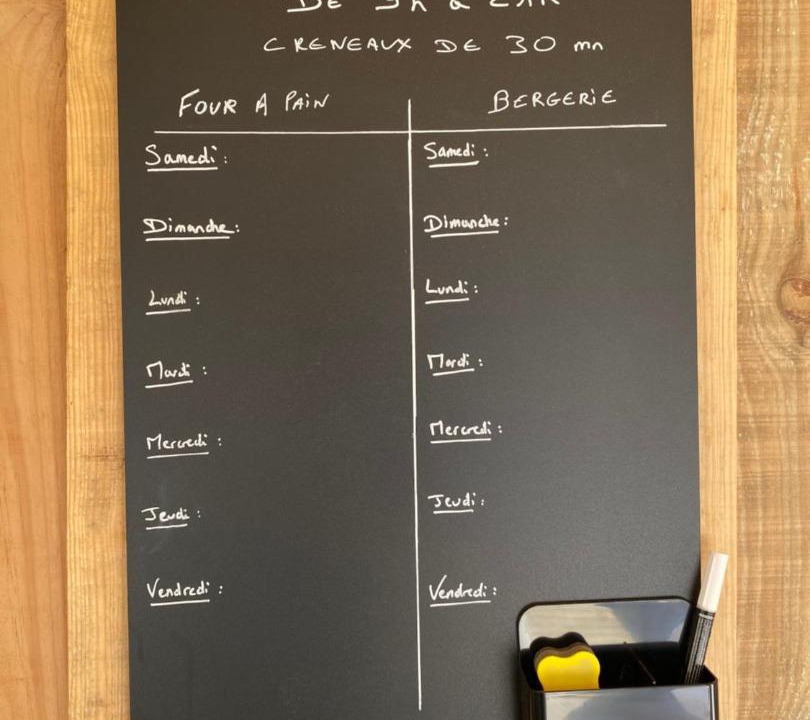 DE
CRENEAUX DE 30 mn
FOUR A PAIN
Samedi :
Dimanche :
Lundi :
Mardi :
Mercredi :
Jeudi :
Vendredi :
BERGERIE
Samedi :
Dimanche :
Lundi :
Mardi :
Mercredi :
Jeudi :
Vendredi :